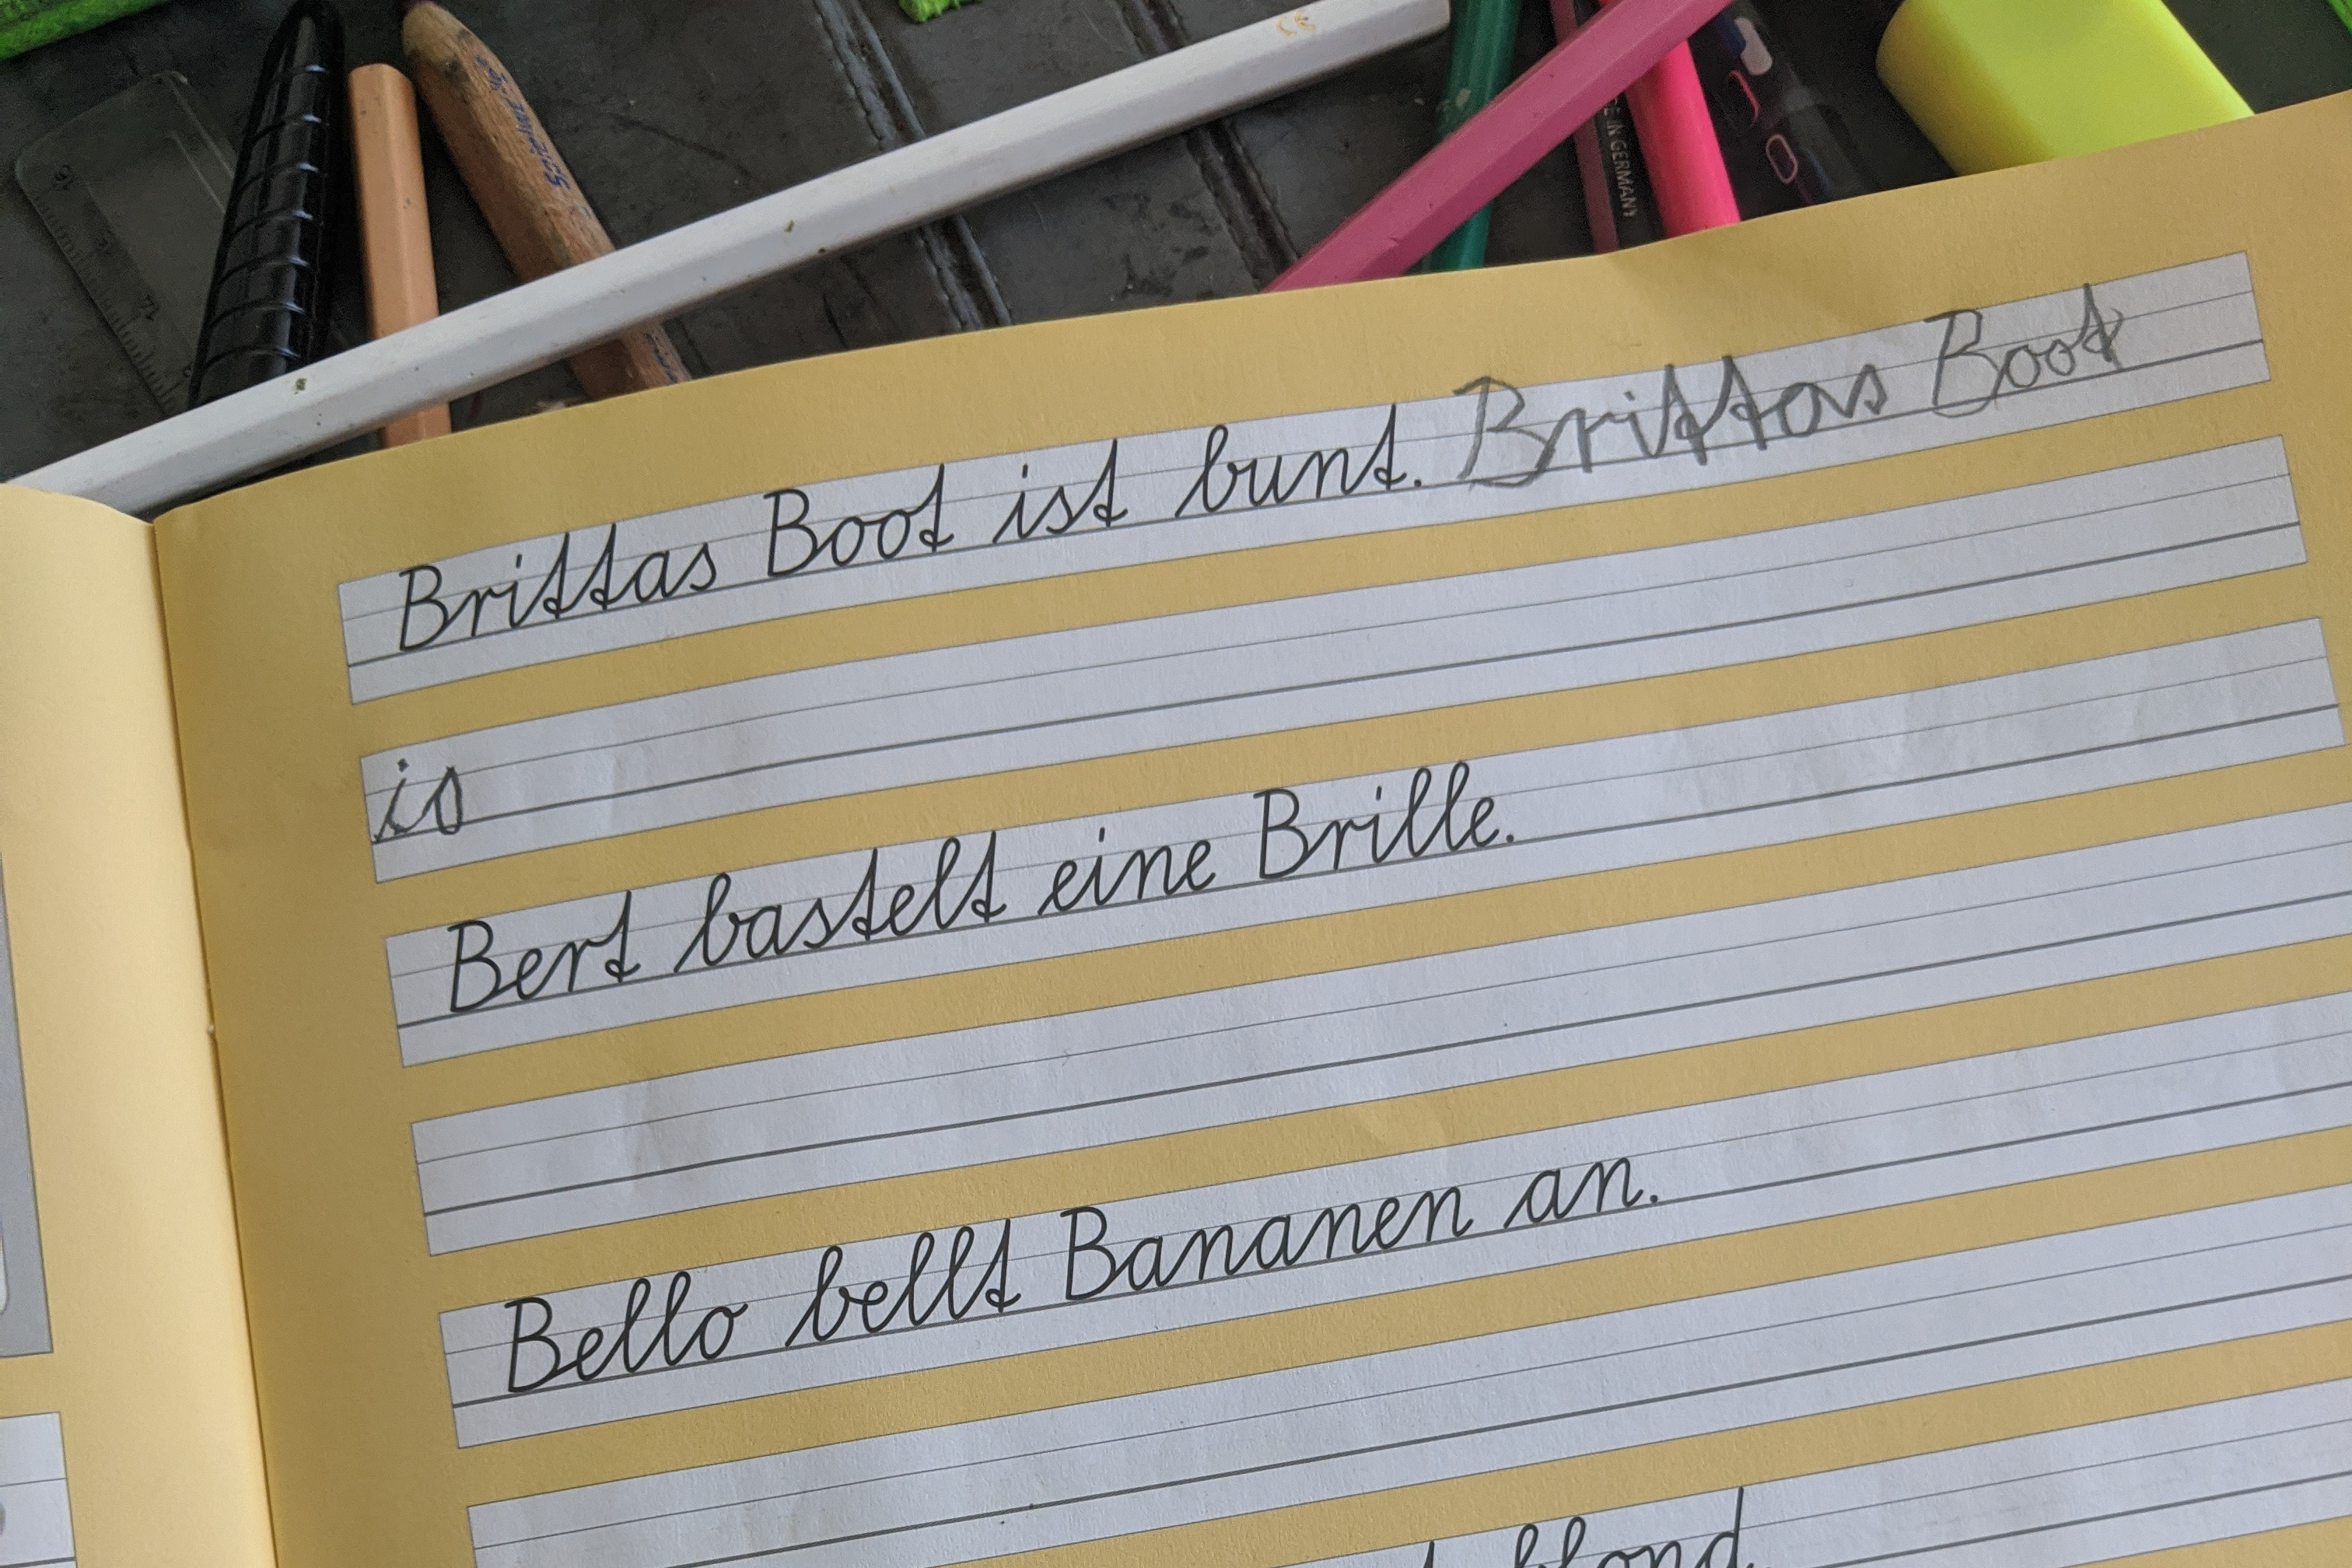 Schleifer
DE IN GERMANY
Brittas Boot ist bunt. Brittas Boot
is
Bert bastelt eine Brille.
Bello bellt Bananen an.
blond